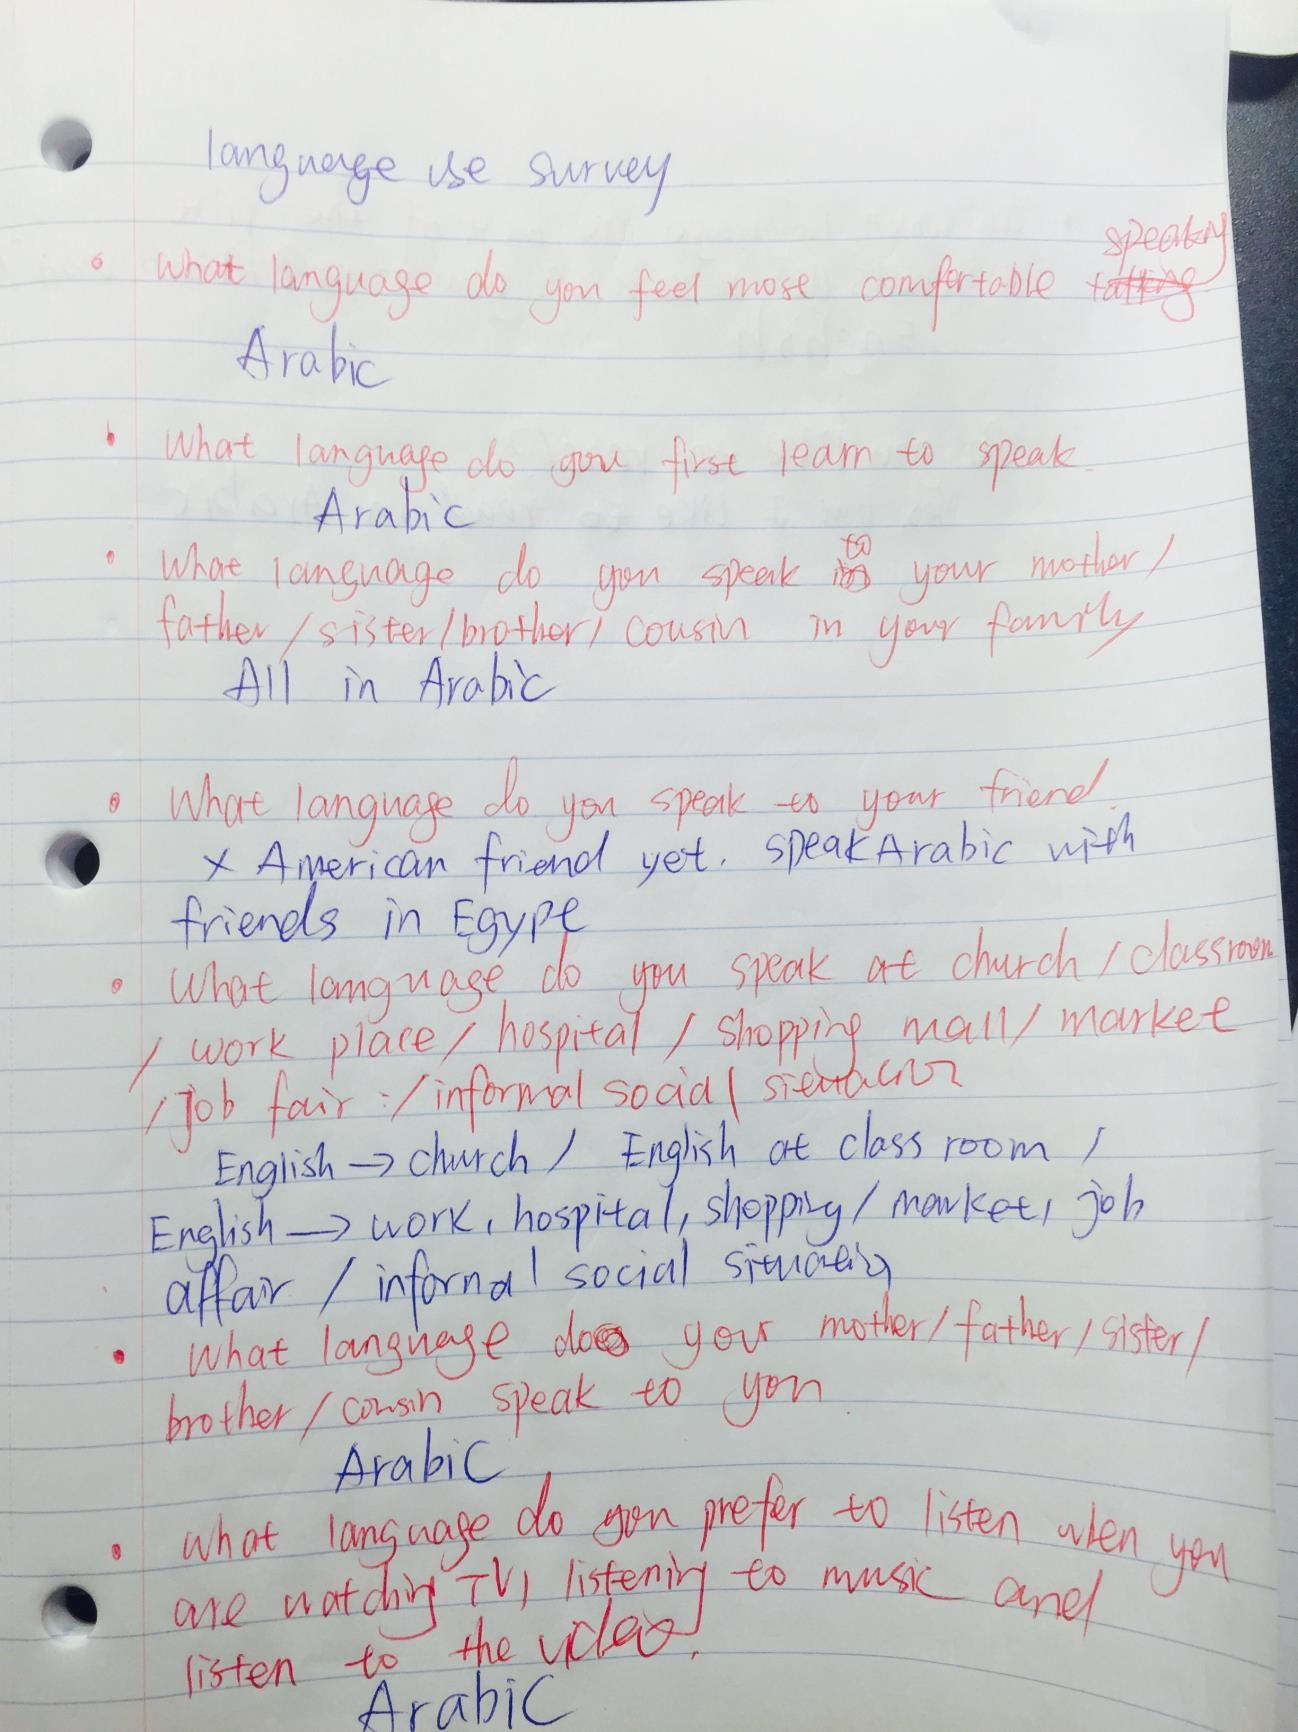 language use survey
speaking
• What language do you feel most comfortable talking
Arabic
• What language do you first learn to speak.
Arabic
to
• What language do you speak in your mother/
father/sister/brother/cousin in your family
All in Arabic
• What language do you speak to your friend.
x American friend yet. speak Arabic with
friends in Egypt
• What language do you speak at church/classroom
/ work place/ hospital / shopping mall/ market
/job fair :/informal social situation
English → church / English at class room /
English → work, hospital, shopping/ market, job
affair / informal social situation
• What language does your mother/father/sister/
brother/cousin speak to you
Arabic
• What language do you prefer to listen when you
are watching TV, listening to music and
listen to the video.
Arabic